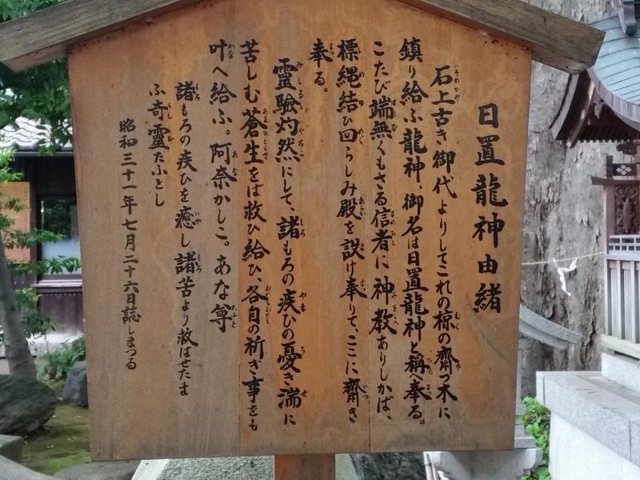 日置龍神由緒
石上古き御代よりしてこれの椋の齋つ木に
鎮り給ふ龍神 御名は日置龍神と稱へ奉る。
こたび端無くもさる信者に神教ありしかば、
標縄結ひ回らしみ殿を設け奉りて、ここに齋き
奉る。
靈驗灼然にして、諸もろの疾ひの憂き湍に
苦しむ蒼生をば救ひ給ひ、各自の祈ぎ事をも
叶へ給ふ。阿奈かしこ。あな尊
諸もろの疾ひを癒し諸苦より救はせたま
ふ奇靈たふとし
昭和三十一年七月二十六日誌しまつる